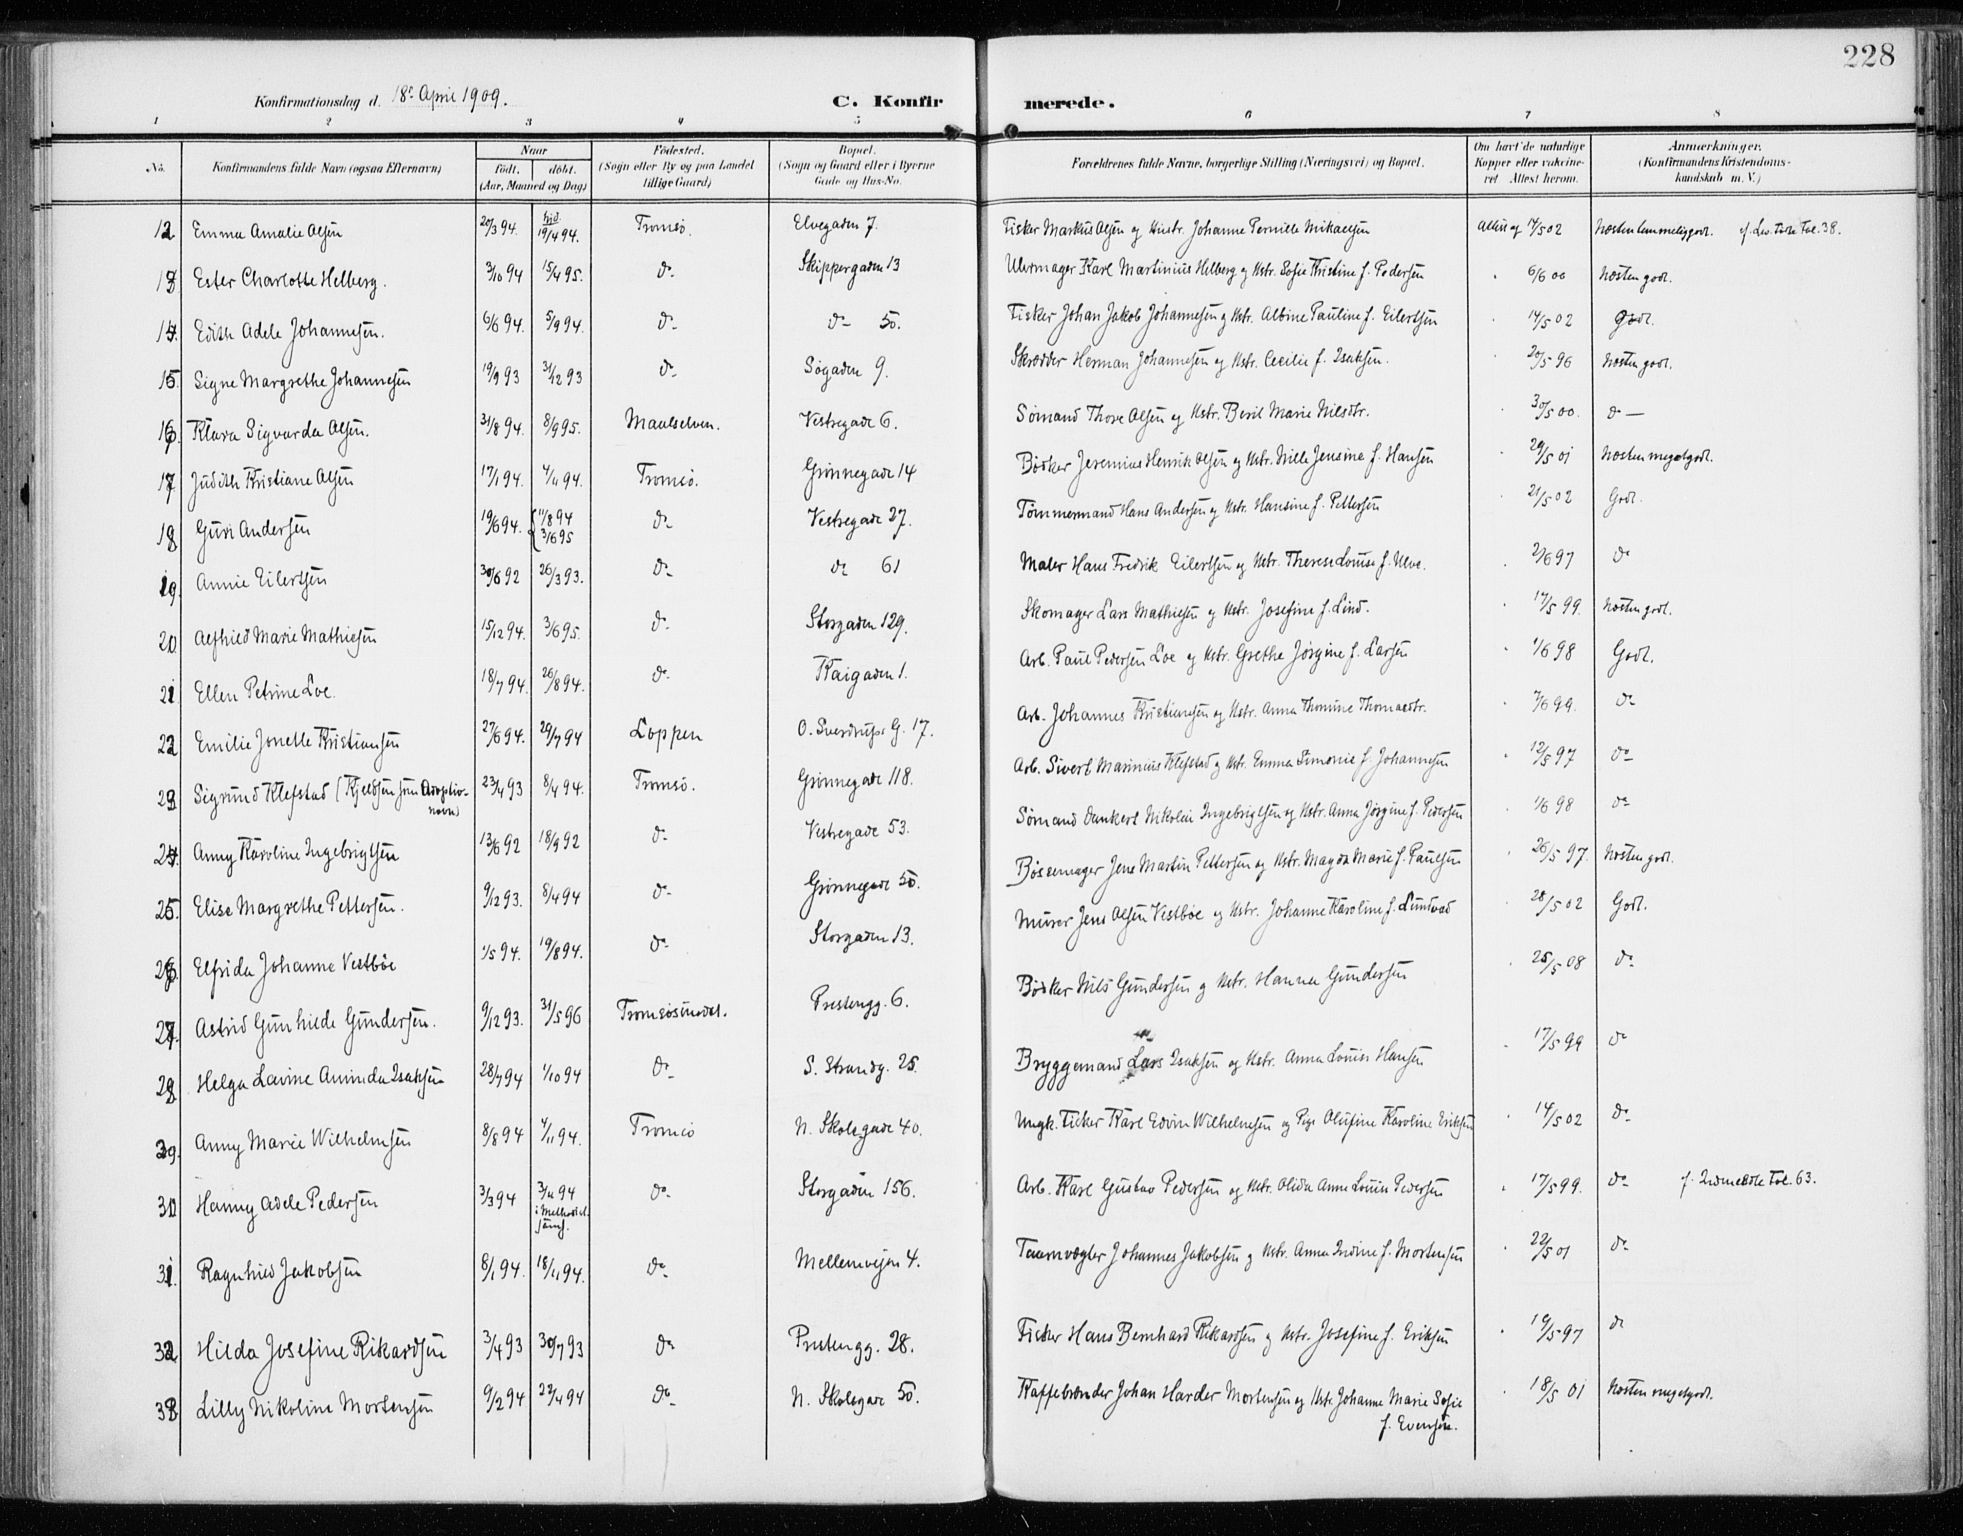 228
Konfirmationsdag d. 18de April 1909. C. Konfirmerede.
1 2 3 4 5 6 7 8
No. Konfirmandens fulde Navn (ogsaa Efternavn) Naar født. døbt. (Aar, Maaned og Dag) Fødested. (Sogn eller By og paa Landet tillige Gaard) Bopæl. (Sogn og Gaard eller i Byerne Gade og Hus-No. Forældrenes fulde Navne, borgerlige Stilling (Næringsvei) og Bopæl. Om havt de naturlige Kopper eller vakcineret Attest herom. Anmerkninger. (Konfirmandens Kristendomskundskab m. V.)
12 Emma Amalie Olsen 20/3 94. hjd. 19/4 94. Tromsø. Elvegaden 7. Fisker Markus Olsen og Hustr. Johanne Pernille Mikaelsen Attest af 14/5 02 Næsten temmelig godt.
13. Ester Charlotte Helberg. 3/10 94 15/4 95. do Skippergaden 13 Uhrmager Karl Martinius Helberg og Hstr. Sofie Kristine f. Pedersen " 6/6 00 Næsten godt.
14. Edith Adele Johannesen. 6/6 94. 5/9 94. do do 50. Fisker Johan Jakob Johannesen og Hstr. Albine Pauline f. Eilertsen " 14/5 02 Godt.
15. Signe Margrethe Johannesen 19/9 93 31/12 93 do Søgaden 9. Skrædder Herman Johannesen og Hstr. Cecilie f. Isaksen. " 20/5 96 Næsten godt.
16. Klara Sigvarda Olsen. 31/8 94. 8/9 95. Maalselven. Vestregade 6. Sømand Thore Olsen og Hstr. Beril Marie Nilsdtr. " 30/5 00. do
17 Judith Kristiane Olsen 17/1 94. 4/11 94. Tromsø. Grønnegade 14 Bødker Jeremias Henrik Olsen og Hstr. Nille Jensine f. Hansen 29/5 01 Næsten meget godt.
18 Guri Andersen 19/6 94. 11/8 94 3/6 95 do Vestregade 27. Tømmermand Hans Andersen og Hstr. Hansine f. Pettersen " 21/5 02 Godt.
19. Annie Eilertsen 30/6 92 26/3 93. do do 61 Maler Hans Fredrik Eilertsen og Hstr. Therese Louise f. Ulve. " 2/6 97 do
20 Alfhild Marie Mathiesen 15/12 94. 3/6 95. do Storgaden 129. Skomager Lars Mathiesen og Hstr. Josefine f. Lind. " 17/5 99. Næsten godt.
21 Ellen Petrine Loe. 18/7 94. 26/8 94. do Kaigaden 1. Arb. Paul Pedersen Loe og Hstr. Grethe Jørgine f. Larsen " 1/6 98 Godt.
22 Emilie Jonette Kristiansen 27/6 94. 29/7 94 Loppen O. Sverdrups G. 17. Arb. Johannes Kristiansen og Hstr. Anna Thomine Thomasdtr. " 7/6 99. do
23. Sigrund Klefstad (Kjeldsen Adoptivnavn) 23/4 93 8/4 94. Tromsø. Grønnegade 118. Arb. Sivert Marinius Klefstad og Hstr. Emma Simonie f. Johannesen " 12/5 97 do
24. Anny Karoline Ingebrigtsen 13/6 92 18/9 92 do Vestregade 53. Sømand Dankert Nikolai Ingebrigtsen og Hstr. Anna Jørgine f. Pedersen " 1/6 98 do
25. Elise Margrethe Pettersen. 9/12 93. 8/4 94 do Grønnegade 50. Bøssemager Jens Martin Pettersen og Hstr. Magda Marie f. Paulsen " 26/5 97. Næsten godt.
26. Elfrida Johanne Vestbøe 1/5 94. 19/8 94. do Storgaden 13. Murer Jens Olsen Vestbøe og Hstr. Johanne Karoline f. Lundvad " 28/5 02 Godt.
27. Astrid Gunhilde Gundersen. 9/12 93. 31/5 96 Tromsøsundet. Prestengg. 6. Bødker Nils Gundersen og Hstr. Hanna Gundersen " 25/5 08 do
28 Helga Lavine Aminda Isaksen 28/7 94 1/10 94 do S. Strandg. 25. Bryggemand Lars Isaksen og Hstr. Anna Louise Hansen " 17/5 99 do
29. Anny Marie Wilhelmsen 8/8 94 4/11 94. Tromsø N. Skolegade 40. Ungk. Fisker Karl Edvin Wilhelmsen og Pige Olufine Karoline Eriksen " 14/5 02 do
30 Hanny Adele Pedersen 3/3 94 3/4 94 i Methodist. samf. do Storgaden 156. Arb. Karl Gustav Pedersen og Hstr. Olida Anne Louise Pedersen " 17/5 99. do f. Indmeldte Fol. 63.
31. Ragnhild Jakobsen 8/1 94. 18/11 94. do Mellemveien 4. Taarnvægter Johannes Jakobsen og Hstr. Anna Indine f. Mortensen " 22/5 01 do
32 Hilda Josefine Rikardsen 3/4 93 30/7 93 do Prestengg. 28. Fisker Hans Bernhard Rikardsen og Hstr. Josefine f. Eriksen " 19/5 97 do
33. Lilly Nikoline Mortensen 9/2 94 22/4 94 do N. Skolegade 50. Kaffebrænder Johan Harder Mortensen og Hstr. Johanne Marie Sofie f. Evensen. " 18/5 01 Næsten meget godt.